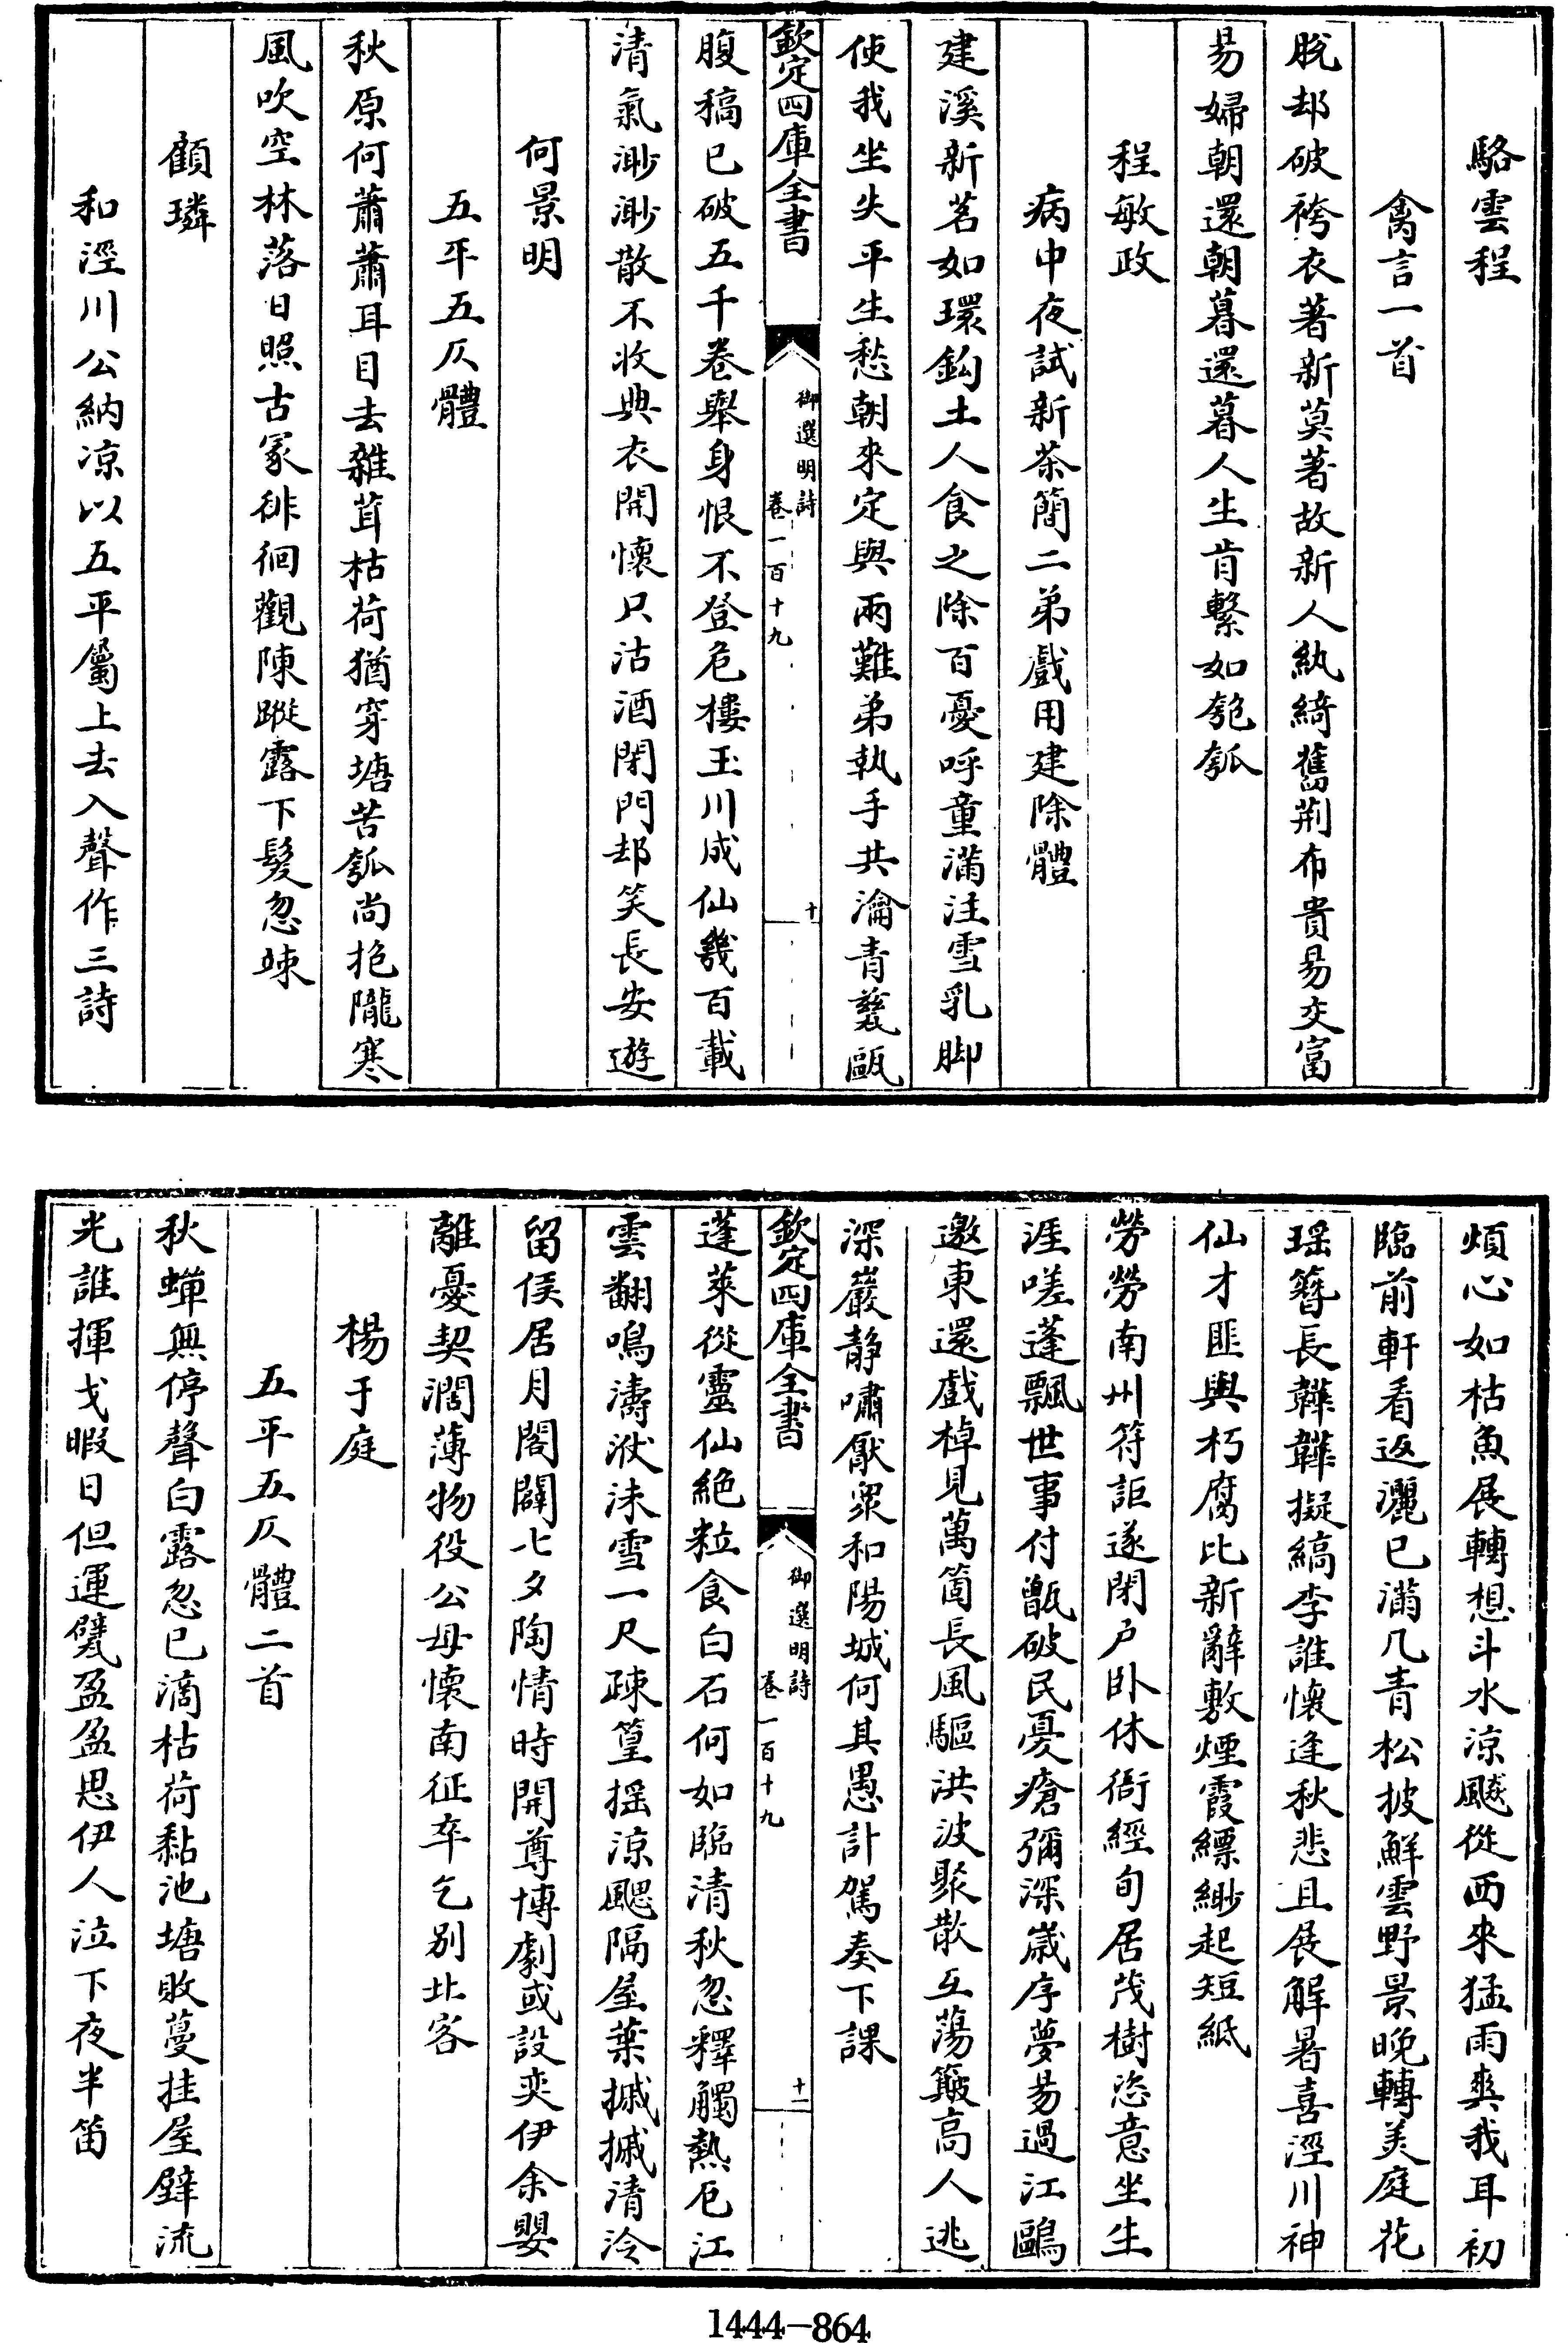 駱雲程
禽言一首
脫却破袴衣著新莫著故新人紈綺舊荆布貴易交富
易婦朝還朝暮還暮人生肯繫如匏瓠
程敏政
病中夜試新茶簡二弟戲用建除體
建溪新茗如環鈎土人食之除百憂呼童滿注雪乳脚
使我坐失平生愁朝來定與兩難弟執手共瀹青甆甌
欽定四庫全書
御選明詩
卷一百十九
十
腹稿已破五千卷舉身恨不登危樓玉川成仙幾百載
清氣渺渺散不收典衣開懷只沽酒閉門却笑長安遊
何景明
五平五仄體
秋原何蕭蕭耳目去雜茸枯荷猶穿塘苦瓠尚抱隴寒
風吹空林落日照古冢徘徊觀陳蹤露下髮忽竦
顧璘
和涇川公納凉以五平屬上去入聲作三詩
煩心如枯魚展轉想斗水涼飈從西來猛雨爽我耳初
臨前軒看返灑已滿几青松披鮮雲野景晚轉美庭花
瑶簪長韡韡擬縞李誰懷逢秋悲且展解暑喜涇川神
仙才匪與朽腐比新辭敷煙霞縹緲起短紙
勞勞南州符詎遂閉戶卧休衙經旬居茂樹恣意坐生
涯嗟蓬飄世事付甑破民憂瘡彌深歲序夢易過江鷗
邀東還戲棹見萬箇長風驅洪波聚散互蕩簸高人逃
深巖静嘯厭衆和陽城何其愚計駕奏下課
欽定四庫全書
御選明詩
卷一百十九
十一
蓬萊從靈仙絶粒食白石何如臨清秋忽釋觸熱厄江
雲翻鳴濤洑沫雪一尺疎篁摇涼颸隔屋葉摵摵清泠
留侯居月閣闢七夕陶情時開尊博劇或設奕伊余嬰
離憂契濶薄物役公毋懷南征卒乞别北客
楊于庭
五平五仄體二首
秋蟬無停聲白露忽已滴枯荷黏池塘敗蔓挂屋壁流
光誰揮戈暇日但運甓盈盈思伊人泣下夜半笛
1444—864